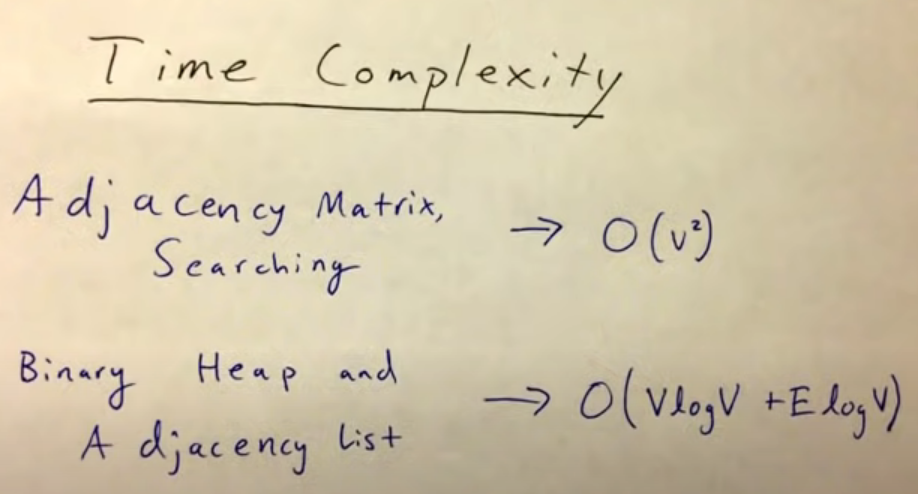 Time Complexity
Adjacency Matrix,
Searching → O(v²)
Binary Heap and
Adjacency List → O(VlogV + E log V)